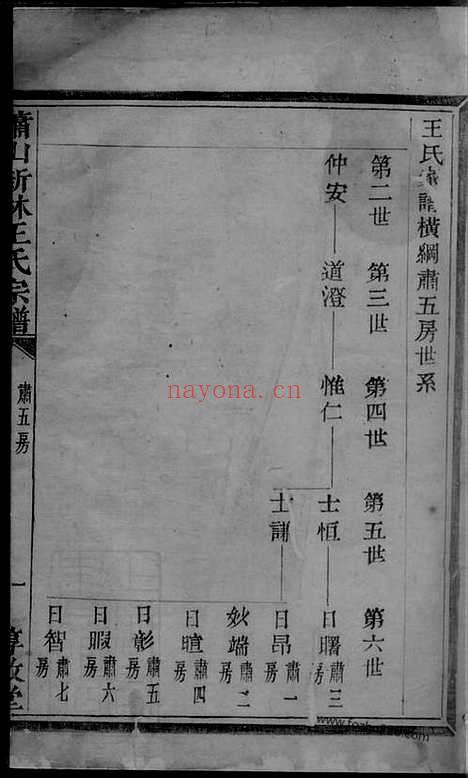 王氏家譜橫綱肅五房世系
第二世 第三世 第四世 第五世 第六世
仲安 道澄 惟仁 士恒 日曙肅三房
士謙 日昂肅一房
秋端肅二房
日暄肅四房
日彰肅五房
日暇肅六房
日智肅七房
蕭山新林王氏宗譜 肅五房 一
nayona.cn